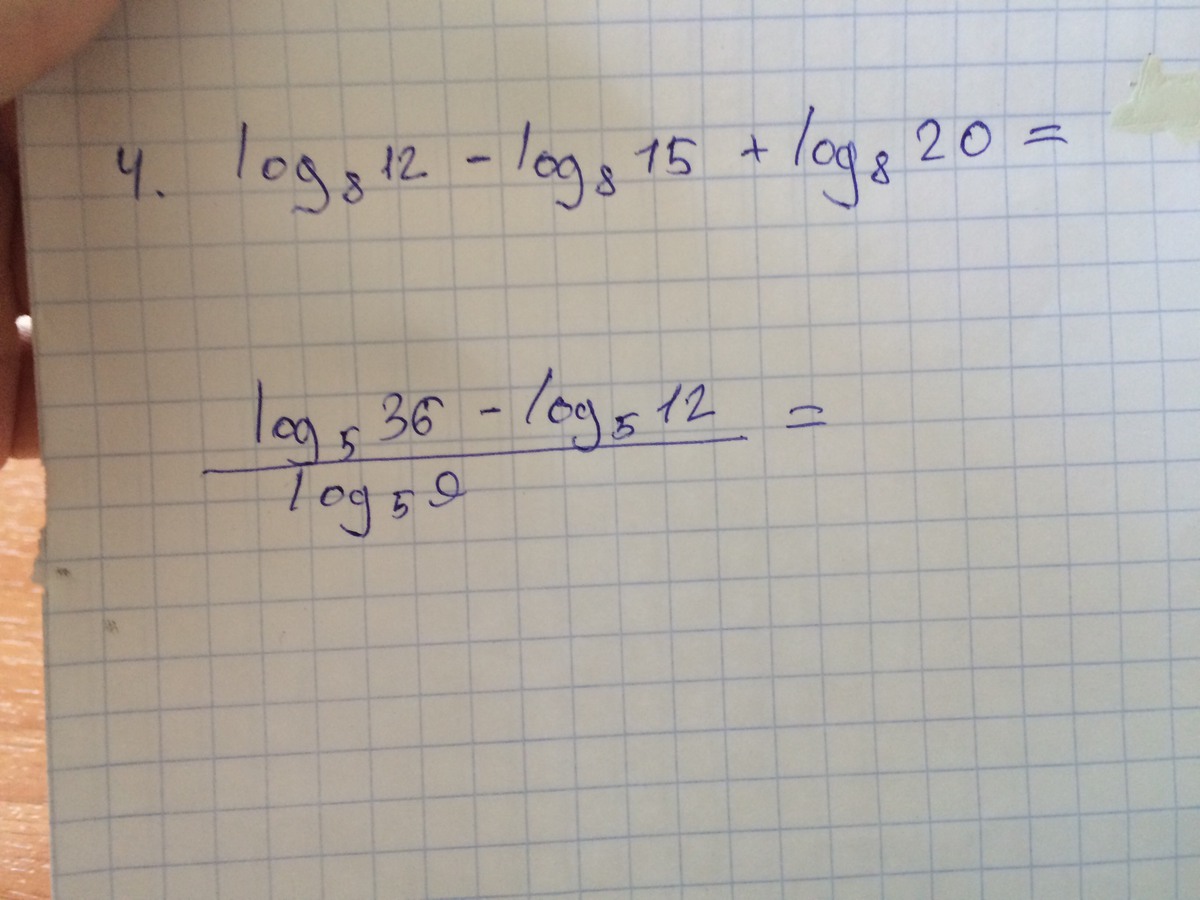 4. log₈ 12 - log₈ 15 + log₈ 20 =
log₅ 36 - log₅ 12 =
log₅ 9